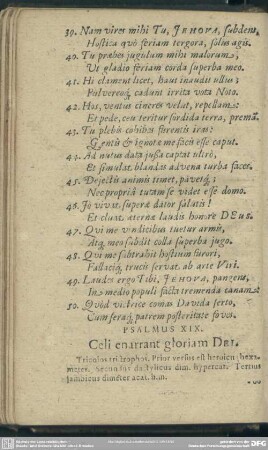 39. Nam vires mihi Tu, JEHOVA, subdens,
Hostica quô feriam tergora, solus agis.
40. Tu præbes jugulum mihi malorum,
Ut gladio feriam corda superba meo.
41. Hi clament licet, haut inaudit ullus;
Pulvereoq; cadunt irrita vota Noto.
42. Hos, ventus cineres velut, repellam:
Et pede, ceu teritur sordida terra, premã.
43. Tu plebis cohibes furentis iras:
Gentiũ & ignotæ me facis esse caput.
44. Ad nutus data jussa captat ultrò,
Et simulat blandas advena turba faces.
45. Dejectis animis timet, pavetq;
Nec propriâ tutam se videt esse domo.
46. Jô vivat superæ dator salutis!
Et cluat æternæ laudis honore DEus.
47. Qui me vindicibus tuetur armis,
Atq; meo subdit colla superba jugo.
48. Qui me subtrahit hostium furori,
Fallaciq; trucis servat ab arte Viri.
49. Laudes ergo Tibi, JEHOVA, pangens,
In medio populi facta tremenda canam.
50. Quòd victrice comas Davida serto,
Cum serâq; patrem posteritate foves.
PSALMUS XIX.
Cœli enarrant gloriam Dei.
Tricolos tristrophos. Prior versus est heroicus hexameter.